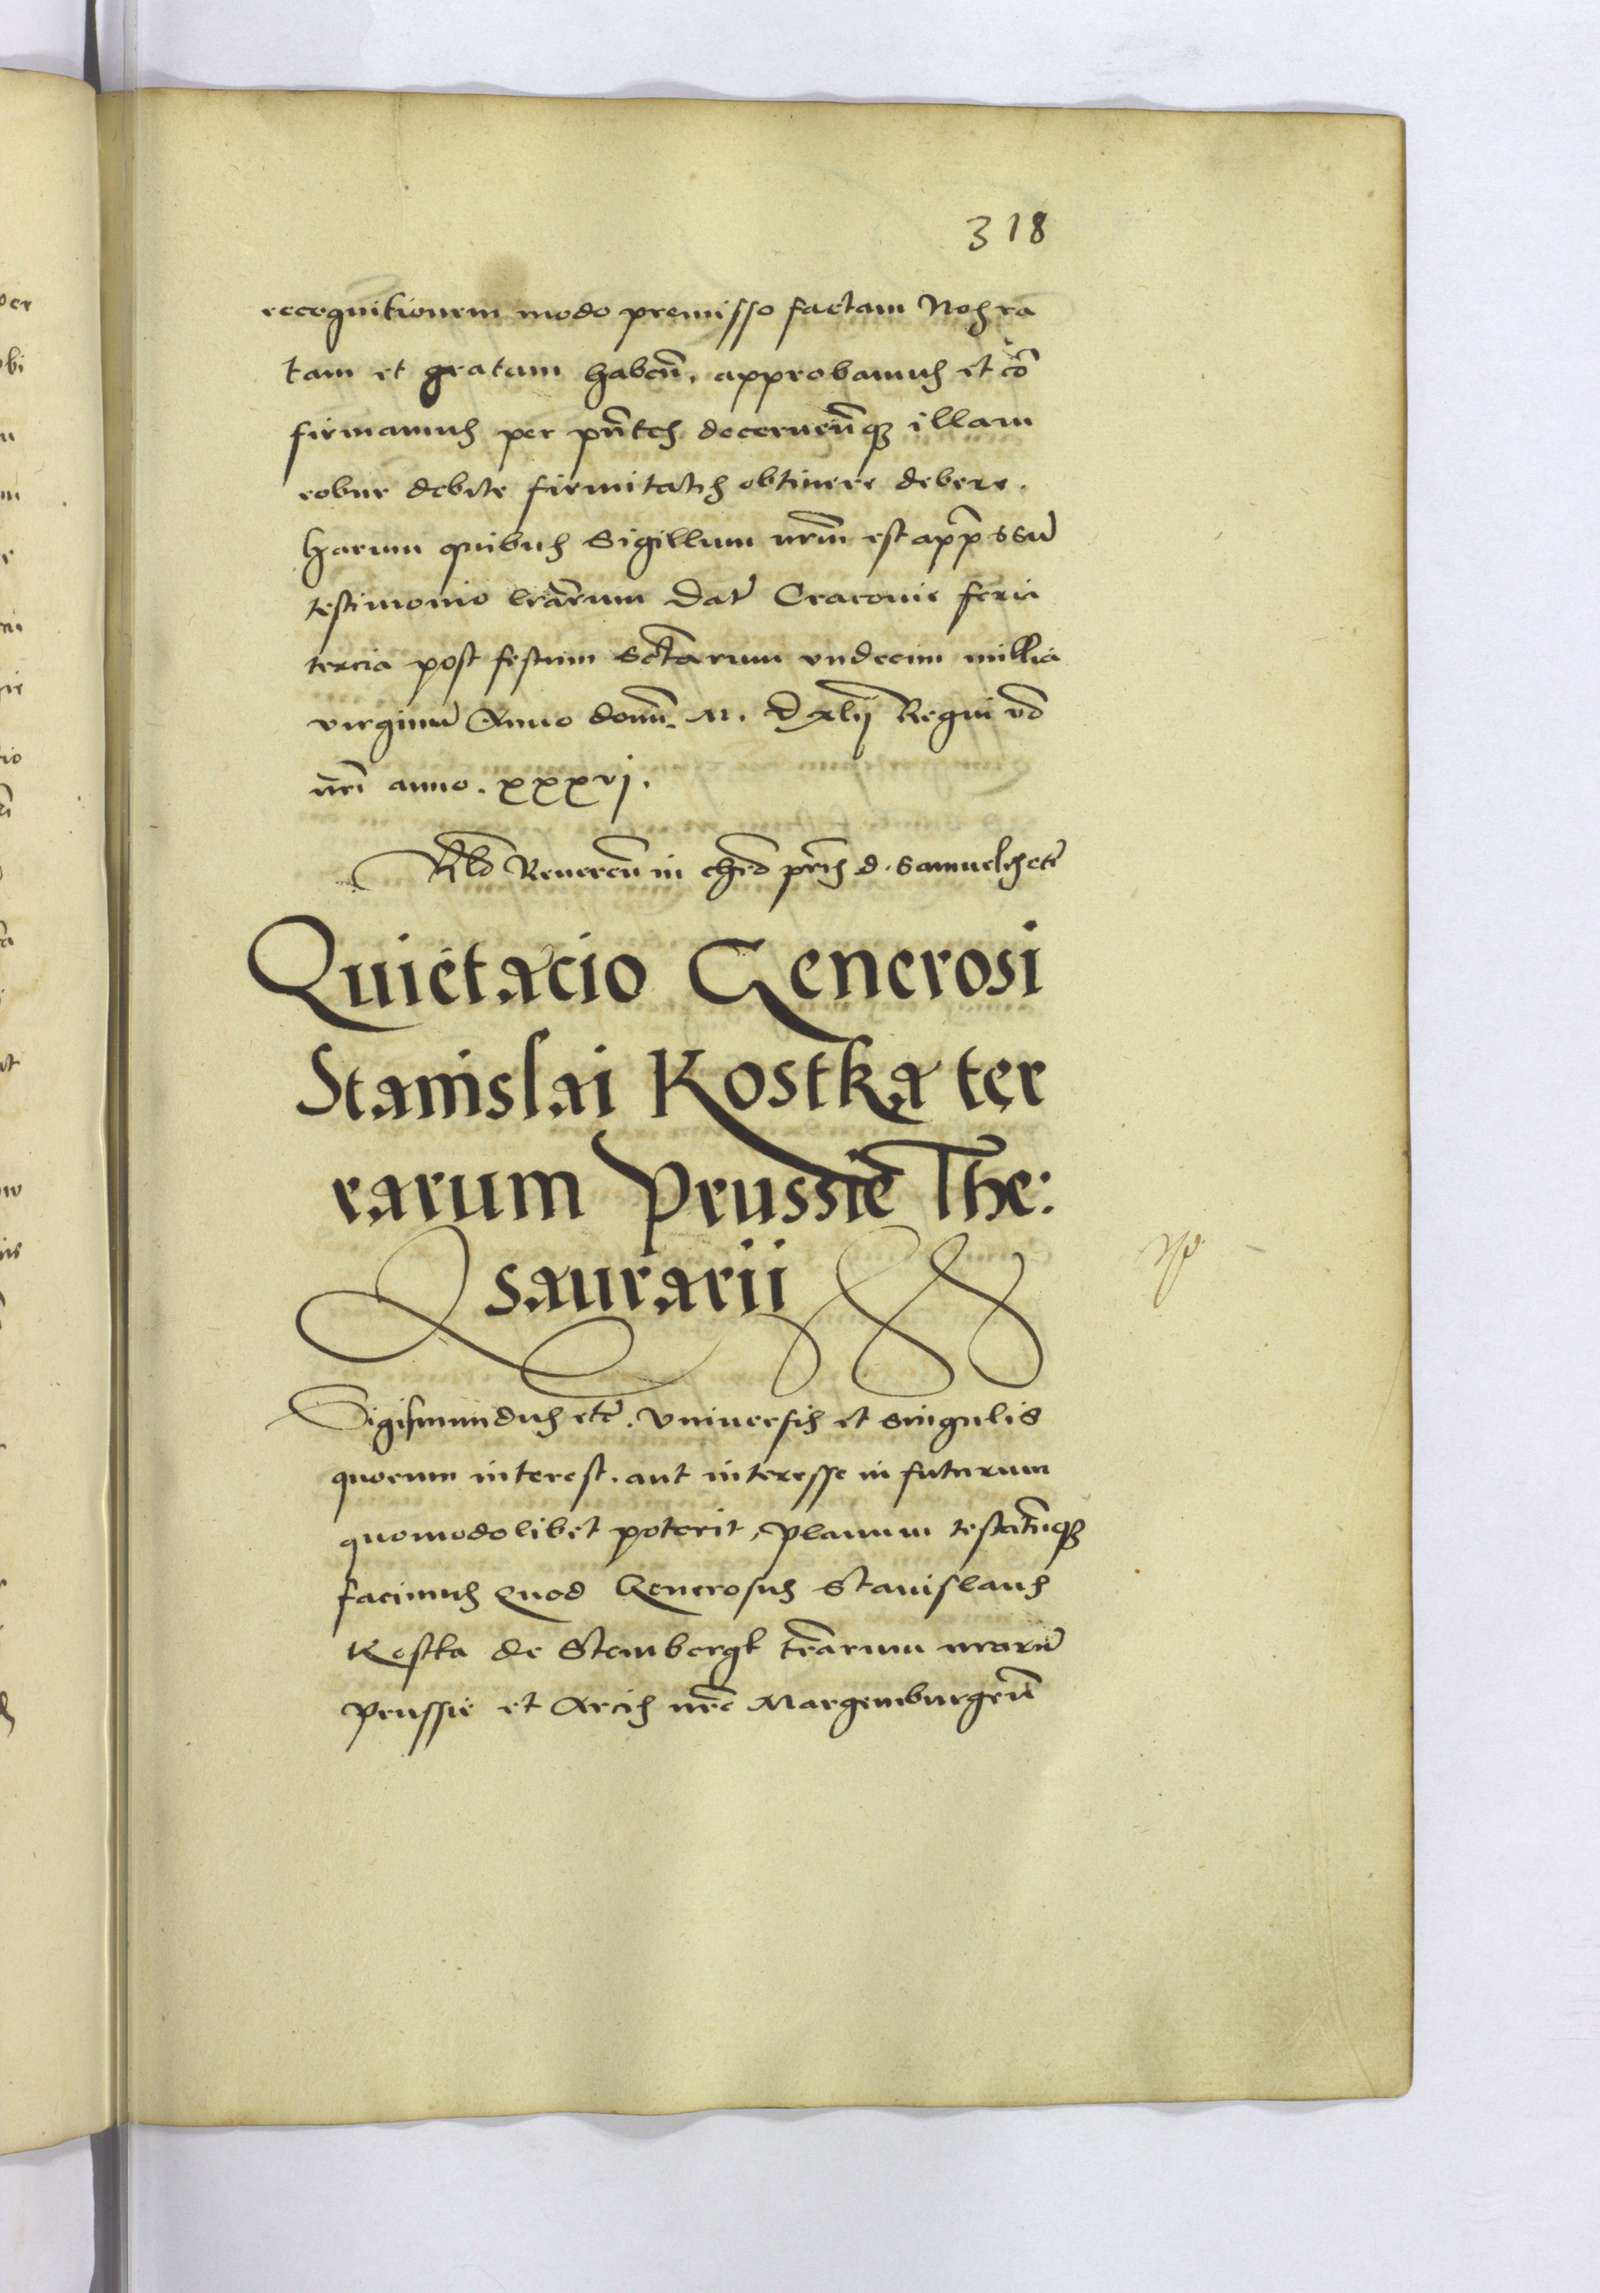 318
recognitionem modo premisso factam Nos ra
tam et gratam haben̄. approbamus et cō
firmamus per pn̄tes decernen̄q₃ illam
robur debite firmitatis obtinere debere.
Harum quibus Sigillum nr̄m est app̄ssū
testimonio lr̄arum Datʳ Cracovie feria
tercia post festum Sctārum undecim millia
virginū Anno domī. M. Dxlij Regni vō
nr̄i anno. xxxvj.
Rēlō Reveren̄ in chrō prīs d. Samuelis etc̄
Quietacio Generosi
Stanislai Kostka ter
rarum Prussie The:
saurarii
Sigismundus etc̄. Universis et singulis
quorum interest. aut interesse in futurum
quomodolibet poterit, planum testatūq₃
facimus Quod Generosus Stanislaus
Kostka de Stembergk tr̄arum nrarū
Prussie et Arcis nr̄e Margemburgen̄